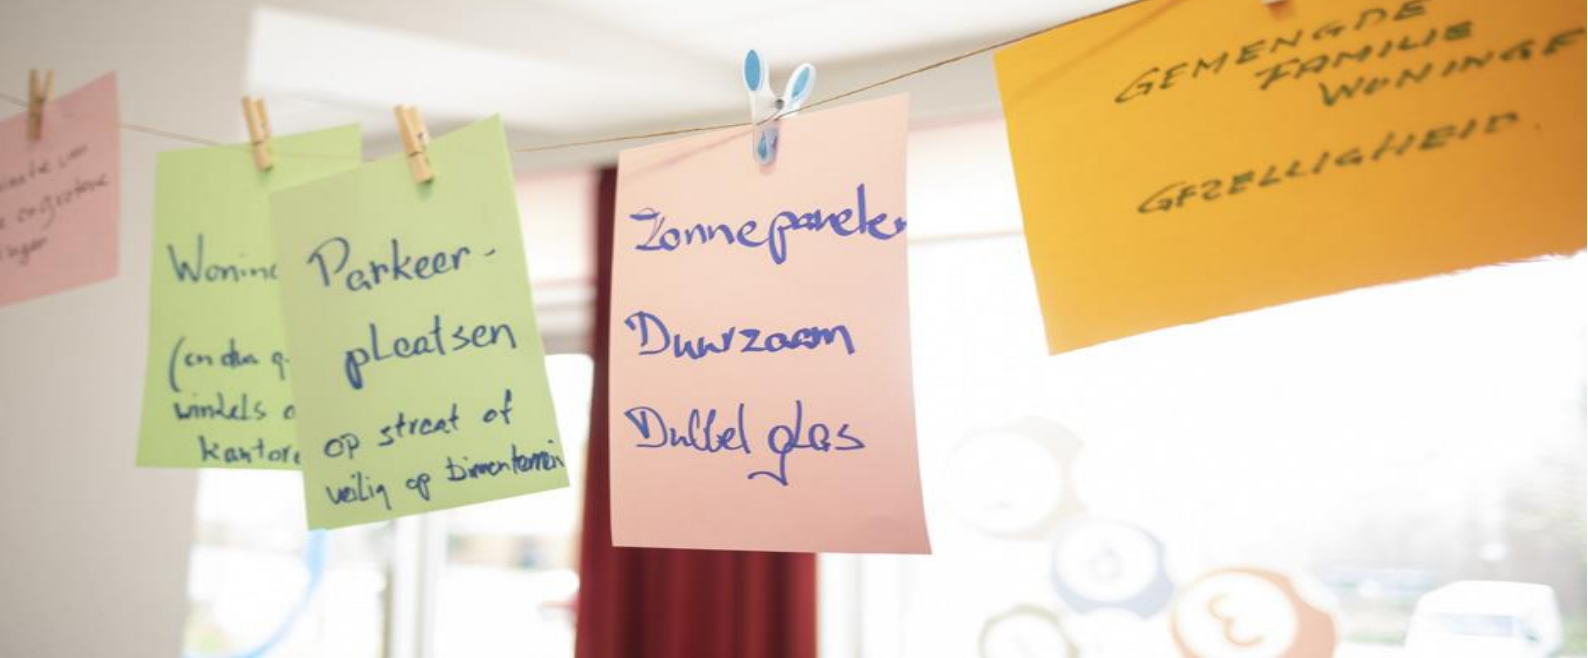 Woning
(en dan g
winkels o
kantore
Parkeer-
plaatsen
op straat of
veilig op binnenterrein
Zonnepanelen
Duurzaam
Dubbel glas
GEMENGDE
FAMILIE
WONINGE
GEZELLIGHEID.